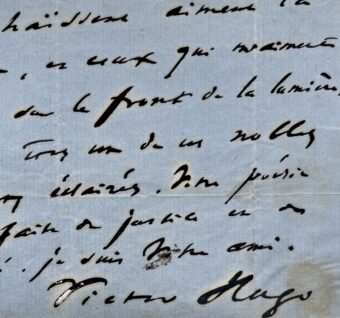 haïssent aiment la
, et ceux qui
sur le front de la lumière
un de ces nobles
éclairés. Votre poésie
faite de justice et de
. je suis votre ami.
Victor Hugo